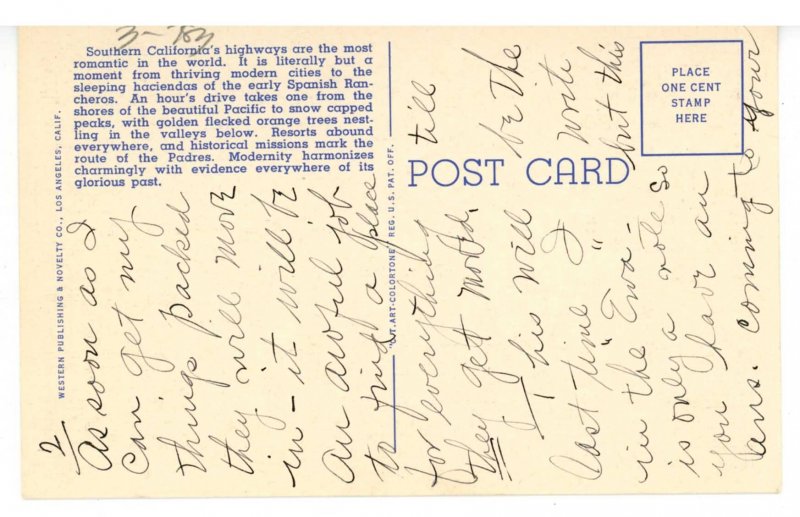 3-83
Southern California's highways are the most
romantic in the world. It is literally but a
moment from thriving modern cities to the
sleeping haciendas of the early Spanish Ran-
cheros. An hour's drive takes one from the
shores of the beautiful Pacific to snow capped
peaks, with golden flecked orange trees nest-
ling in the valleys below. Resorts abound
everywhere, and historical missions mark the
route of the Padres. Modernity harmonizes
charmingly with evidence everywhere of its
glorious past.
WESTERN PUBLISHING & NOVELTY CO., LOS ANGELES, CALIF.
ART-COLORTONE REG. U.S. PAT. OFF.
POST CARD
PLACE
ONE CENT
STAMP
HERE
2
As soon as I
can get my
things packed
they will move
in - it will be
an awful job
to find a place
for everything till
they get moved.
This will be the
last time I write
in the "Ewa" - but this
is only a note so
you have an
ans. coming to your